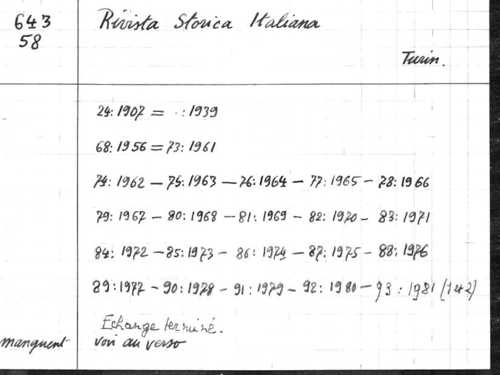 643
58
Rivista Storica Italiana
Turin.
24:1907 = . :1939
68:1956 = 73:1961
74:1962 – 75:1963 – 76:1964 – 77:1965 – 78:1966
79:1967 – 80:1968 – 81:1969 – 82:1970 – 83:1971
84:1972 – 85:1973 – 86:1974 – 87:1975 – 88:1976
89:1977 – 90:1978 – 91:1979 – 92:1980 – 93:1981 (1et2)
Echange terminé.
manquent voir au verso